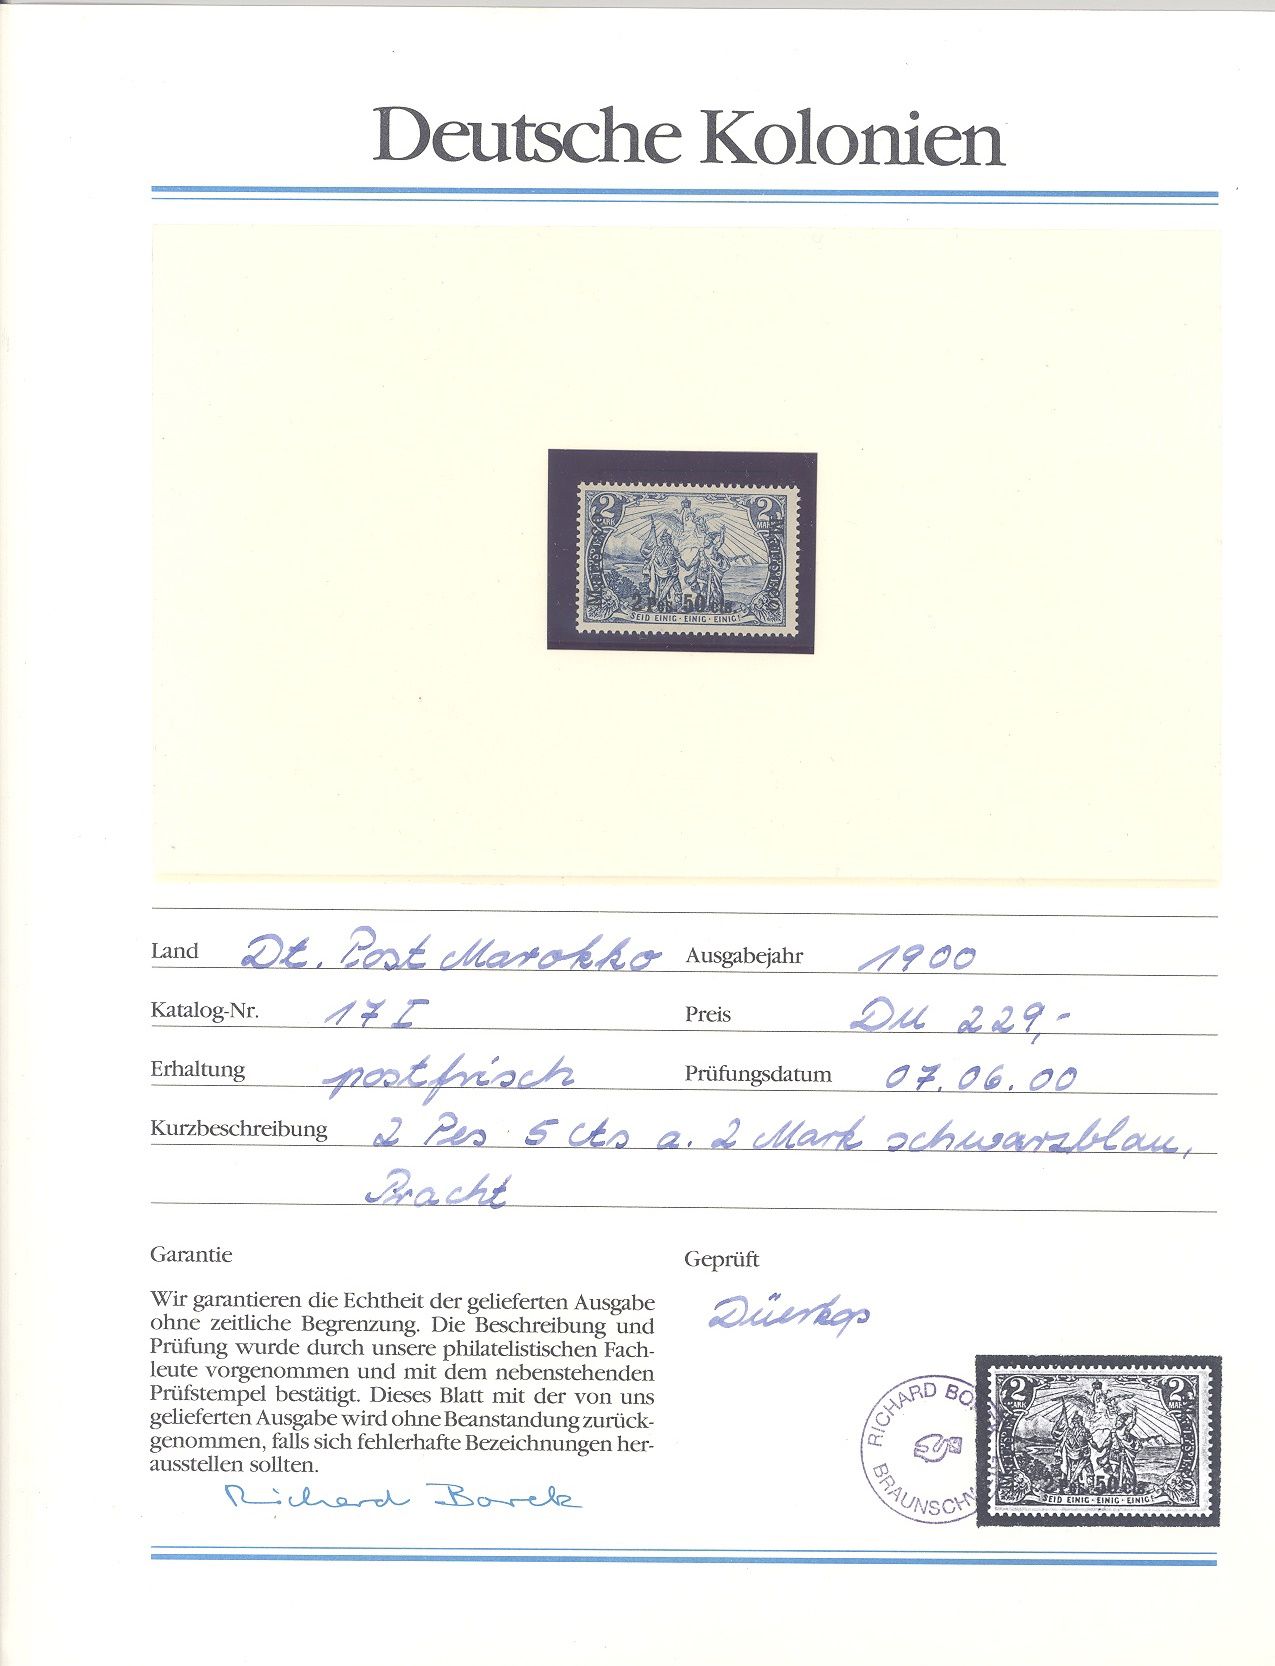 Deutsche Kolonien
2 2
MARK MARK
Marocco Marocco
2 Pes. 50 cts.
SEID EINIG · EINIG · EINIG!
Land Dt. Post Marokko Ausgabejahr 1900
Katalog-Nr. 17 I Preis DM 229,-
Erhaltung postfrisch Prüfungsdatum 07.06.00
Kurzbeschreibung 2 Pes 5 cts a. 2 Mark schwarzblau,
Pracht
Garantie Geprüft
Wir garantieren die Echtheit der gelieferten Ausgabe
ohne zeitliche Begrenzung. Die Beschreibung und
Prüfung wurde durch unsere philatelistischen Fach-
leute vorgenommen und mit dem nebenstehenden
Prüfstempel bestätigt. Dieses Blatt mit der von uns
gelieferten Ausgabe wird ohne Beanstandung zurück-
genommen, falls sich fehlerhafte Bezeichnungen her-
ausstellen sollten.
Richard Borek
Düerkop
RICHARD BO
BRAUNSCHW
2 2
MARK MARK
2 Pes. 50 cts.
SEID EINIG · EINIG · EINIG!